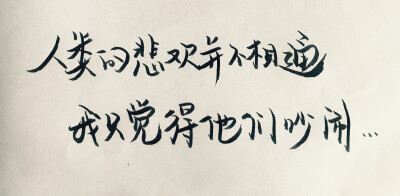 人类的悲欢并不相通
我只觉得他们吵闹…